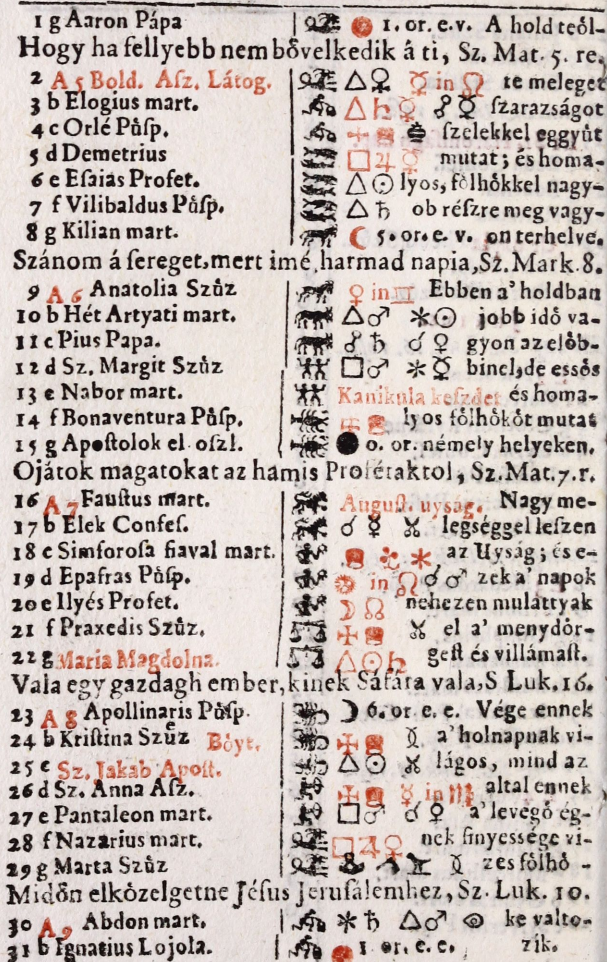 1 g Aaron Pápa 1. or. e. v. A hold teól-
Hogy ha fellyebb nem bővelkedik á ti, Sz. Mat. 5. re.
2 A 5 Bold. Aſz. Látog. △ ♀ ☿ in ♌ te meleget
3 b Elogius mart. △ ♄ ♀ ☍ ☿ ſzarazságot
4 c Orlé Půſp. ſzelekkel eggyůt
5 d Demetrius □ ♃ ☿ mutat; és homa-
6 e Eſaias Profet. △ ☉ lyos, fólhókkel nagy-
7 f Vilibaldus Půſp. △ ♄ ob réſzre meg vagy-
8 g Kilian mart. ☾ 5. or. e. v. on terhelve.
Szánom á ſereget, mert imé harmad napia, Sz. Mark. 8.
9 A 6 Anatolia Szůz ♀ in ♊ Ebben a' holdban
10 b Hét Artyati mart. △ ♂ ⚹ ☉ jobb idő va-
11 c Pius Papa. ☍ ♄ ☌ ♀ gyon az előb-
12 d Sz. Margit Szůz □ ♂ ⚹ ☿ binel, de essős
13 e Nabor mart. Kanikula keſzdet és homa-
14 f Bonaventura Půſp. lyos fólhókőt mutat
15 g Apoſtolok el oſzl. ● 0. or. némely helyeken.
Ojátok magatokat az hamis Profétaktol, Sz. Mat. 7. r.
16 A 7 Fauſtus mart. Auguſt. uyság. Nagy me-
17 b Elek Confeſ. ☌ ☿ legséggel leſzen
18 c Simforoſa fiaval mart. ⚹ az Uyság; és e-
19 d Epafras Půſp. in ♌ ☌ ♂ zek a' napok
20 e Ilyés Profet. ☽ ☊ nehezen mulattyak
21 f Praxedis Szůz. el a' menydőr-
22 g Maria Magdolna. △ ☉ ♄ geſt és villámaſt.
Vala egy gazdagh ember, kinek Sáfára vala, S Luk. 16.
23 A 8 Apollinaris Půſp. ☽ 6. or. e. e. Vége ennek
24 b Kriſtina Szůz Bőyt. a' holnapnak vi-
25 c Sz. Jakab Apoſt. △ ☉ lágos, mind az
26 d Sz. Anna Aſz. ☿ in ♍ altal ennek
27 e Pantaleon mart. □ ♂ ☌ ♀ a' levegő ég-
28 f Nazarius mart. □ ♃ ♀ nek finyessége vi-
29 g Marta Szůz zes főlhő -
Midőn elkőzelgetne Jéſus Jeruſalemhez, Sz. Luk. 10.
30 A 9 Abdon mart. ⚹ ♄ △ ♂ ke valto-
31 b Ignatius Lojola. 1 or. e. e. zik.